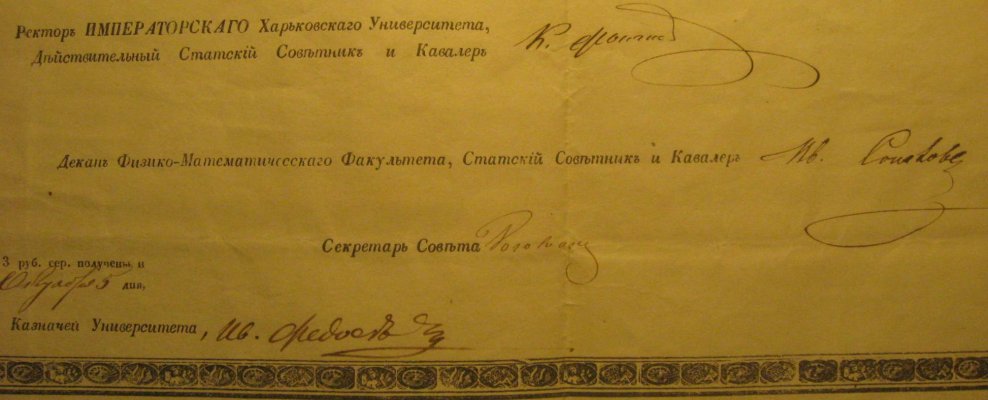 Ректоръ ИМПЕРАТОРСКАГО Харьковскаго Университета,
Дѣйствительный Статскій Совѣтникъ и Кавалеръ К.
Деканъ Физико-Математическаго Факультета, Статскій Совѣтникъ и Кавалеръ Ив.
Секретарь Совѣта
3 руб. сер. получены и
Октября 5 дня,
Казначей Университета, Ив.